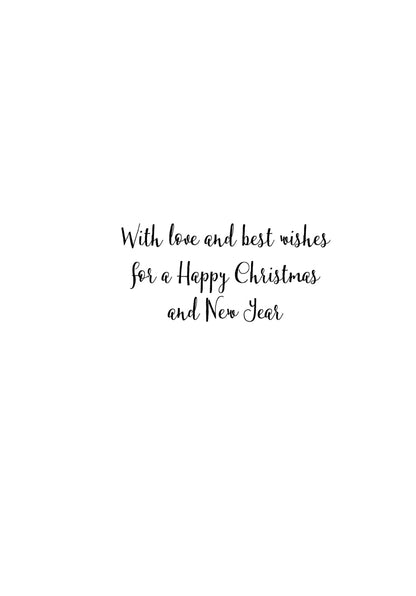 With love and best wishes
for a Happy Christmas
and New Year